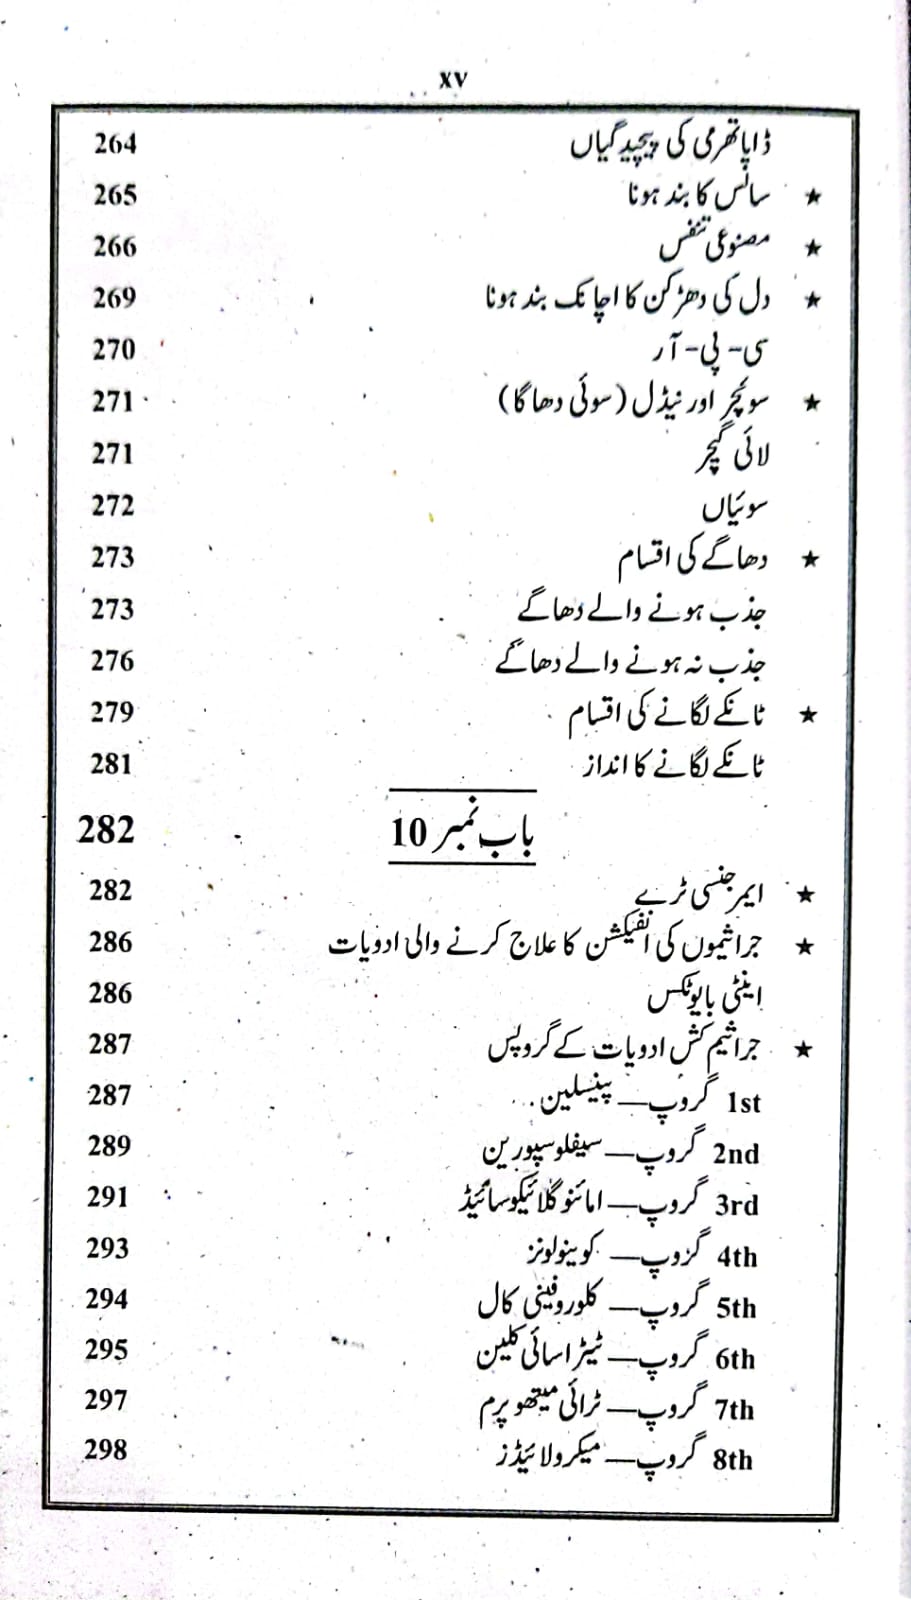 XV
ڈایاتھرمی کی پیچیدگیاں 264
★ سانس کا بند ہونا 265
★ مصنوعی تنفس 266
★ دل کی دھڑکن کا اچانک بند ہونا 269
سی- پی- آر 270
★ سوئچر اور نیڈل (سوئی دھاگا) 271
لائی گیچر 271
سوئیاں 272
★ دھاگے کی اقسام 273
جذب ہونے والے دھاگے 273
جذب نہ ہونے والے دھاگے 276
★ ٹانکے لگانے کی اقسام 279
ٹانکے لگانے کا انداز 281
باب نمبر 10 282
★ ایمرجنسی ٹرے 282
★ جراثیموں کی انفیکشن کا علاج کرنے والی ادویات 286
اینٹی بایوٹکس 286
★ جراثیم کش ادویات کے گروپس 287
1st گروپ— پینسلین 287
2nd گروپ— سیفلوسپورین 289
3rd گروپ— امائنوگلائیکوسائیڈ 291
4th گروپ— کوینولونز 293
5th گروپ— کلوروفینی کال 294
6th گروپ— ٹیٹراسائی کلین 295
7th گروپ— ٹرائی میتھوپرم 297
8th گروپ— میکرولائیڈز 298